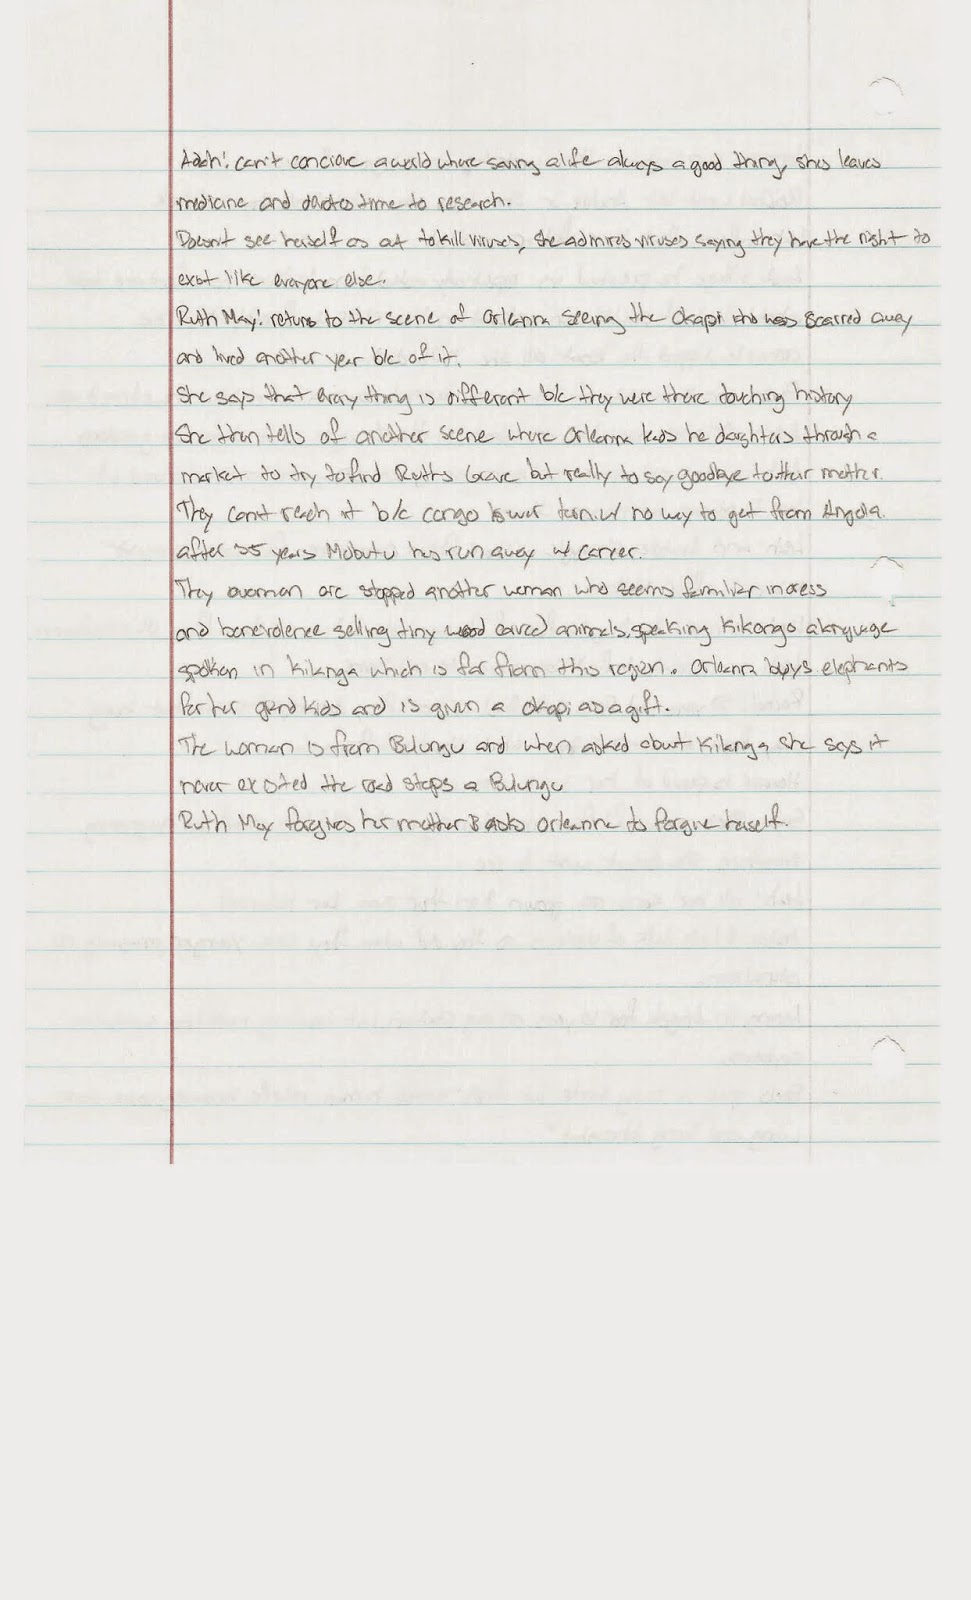 Adah: can't concieve a world where saving a life always a good thing, shes leaves
medicine and devotes time to research.
Doesn't see herself as out to kill viruses, she admires viruses saying they have the right to
exist like everyone else.
Ruth May: returns to the scene of Orleanna seeing the Okapi who was scarred away
and lived another year b/c of it.
She says that every thing is different b/c they were there touching history
She then tells of another scene where Orleanna leads he daughters through a
market to try to find Ruth's Grave but really to say goodbye to their mother.
They can't reach it b/c congo is war torn w/ no way to get from Angola.
after 35 years Mobutu has run away w/ cancer.
They are stopped another woman who seems familiar in dress
and benevolence selling tiny wood carved animals, speaking Kikongo a language
spoken in Kilanga which is far from this region. Orleanna buys elephants
for her grand kids and is given a okapi as a gift.
The woman is from Bulungu and when asked about Kilanga she says it
never existed the road stops a Bulungu
Ruth May forgives her mother & asks Orleanna to forgive herself.